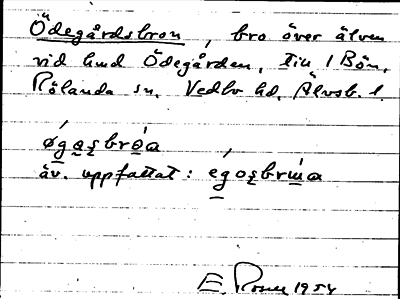 Ödegårdsbron, bro över älven
vid hmd Ödegården, till 1 Bön,
Rölanda sn, Vedbo hd, Älvsb. l.
øgasbrøa
äv. uppfattat: egosbrɯa
E. 1954